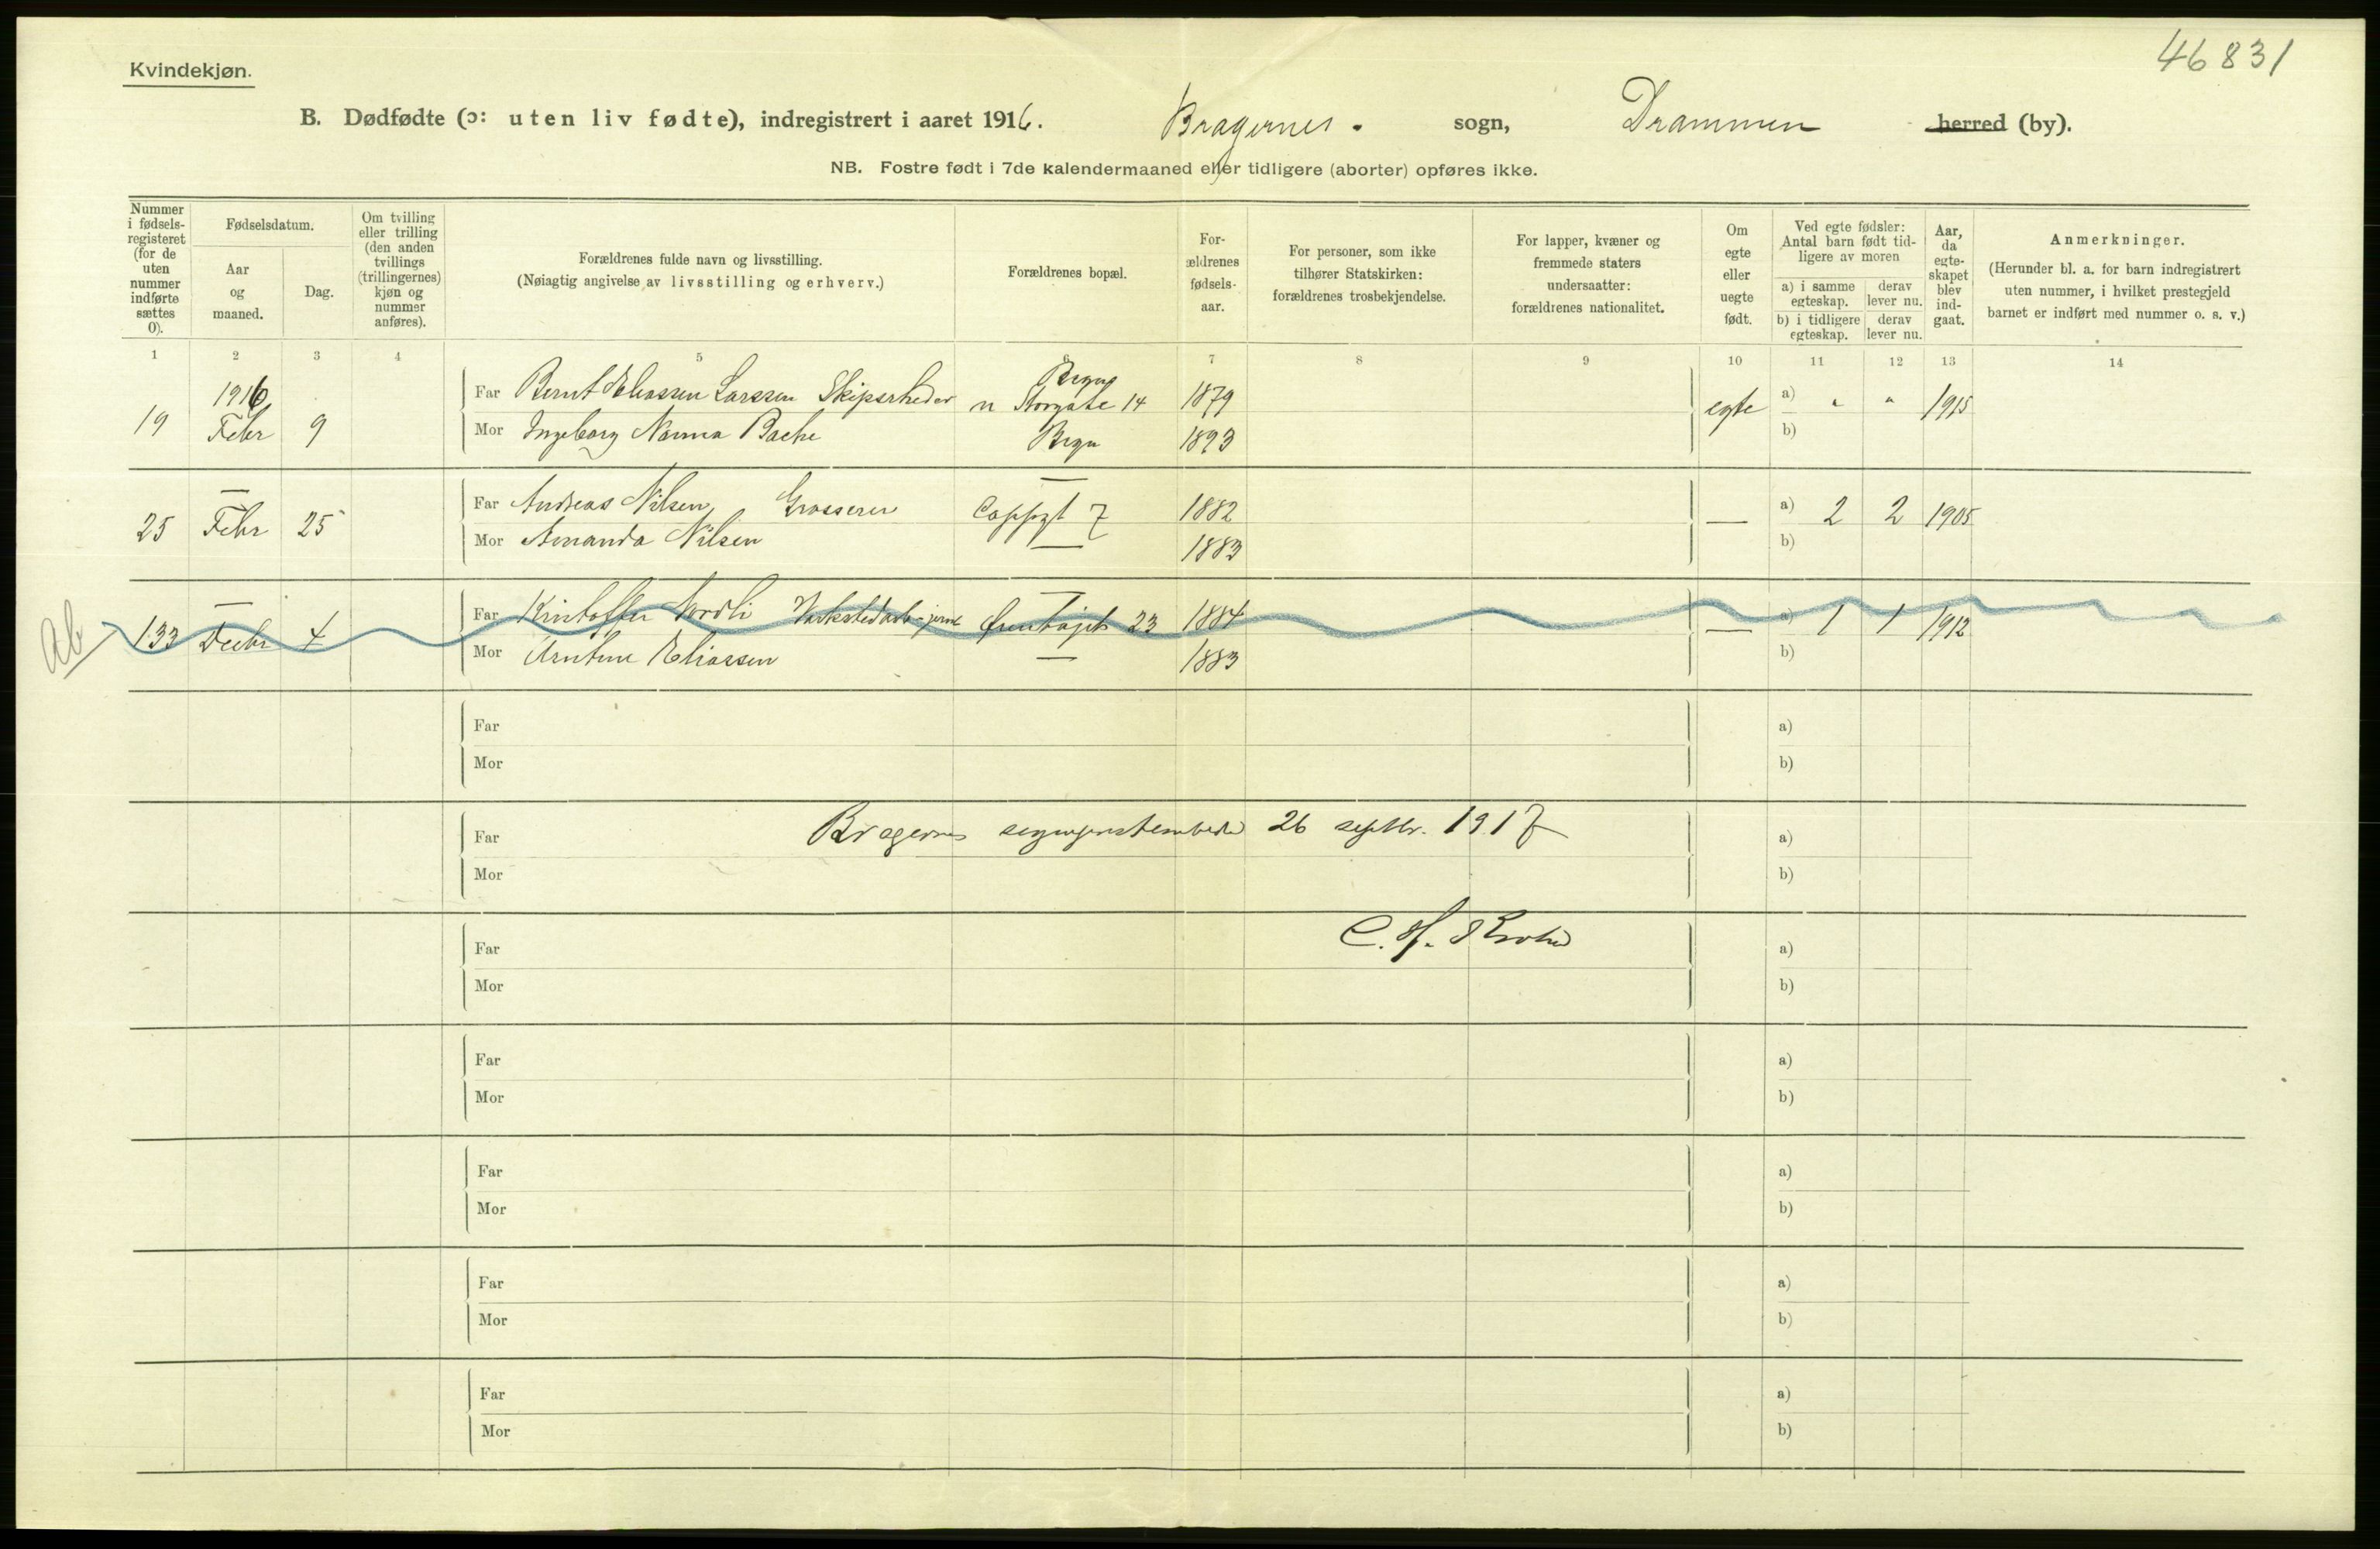 46831
Kvindekjøn.
B. Dødfødte (ɔ: uten liv fødte), indregistrert i aaret 1916. Bragernes. sogn, Drammen herred (by).
NB. Fostre født i 7de kalendermaaned eller tidligere (aborter) opføres ikke.
Nummer
i fødsels-
registeret
(for de
uten
nummer
indførte
sættes
0).
Fødselsdatum.
Aar
og
maaned.
Dag.
Om tvilling
eller trilling
(den anden
tvillings
(trillingernes)
kjøn og
nummer
anføres).
Forældrenes fulde navn og livsstilling.
(Nøiagtig angivelse av livsstilling og erhverv.)
Forældrenes bopæl.
For-
ældrenes
fødsels-
aar.
For personer, som ikke
tilhører Statskirken:
forældrenes trosbekjendelse.
For lapper, kvæner og
fremmede staters
undersaatter:
forældrenes nationalitet.
Om
egte
eller
uegte
født.
Ved egte fødsler:
Antal barn født tid-
ligere av moren
a) i samme
egteskap.
derav
lever nu.
b) i tidligere
egteskap.
derav
lever nu.
Aar,
da
egte-
skapet
blev
ind-
gaat.
Anmerkninger.
(Herunder bl. a. for barn indregistrert
uten nummer, i hvilket prestegjeld
barnet er indført med nummer o. s. v.)
1 2 3 4 5 6 7 8 9 10 11 12 13 14
1916
19 Febr 9
Far Bernt Eliassen Larssen Skipsrheder n Storgate 14 1879 egte a) " " 1915
Mor Ingeborg Nanna Bache 1893 b)
—
25 Febr 25
Far Andreas Nilsen, Grosserer Coppgt 7 1882 — a) 2 2 1905
Mor Amanda Nilsen — 1883 b)
—
Ab
133 Decbr 4
Far Kristoffer Nordli 23 1884 — a) 1 1 1912
Mor Arntine Eliassen — 1883 b)
Far a)
Mor b)
Bragernes 26 septbr. 1917
Far a)
Mor b)
C. H.
Far a)
Mor b)
Far a)
Mor b)
Far a)
Mor b)
Far a)
Mor b)
Far a)
Mor b)